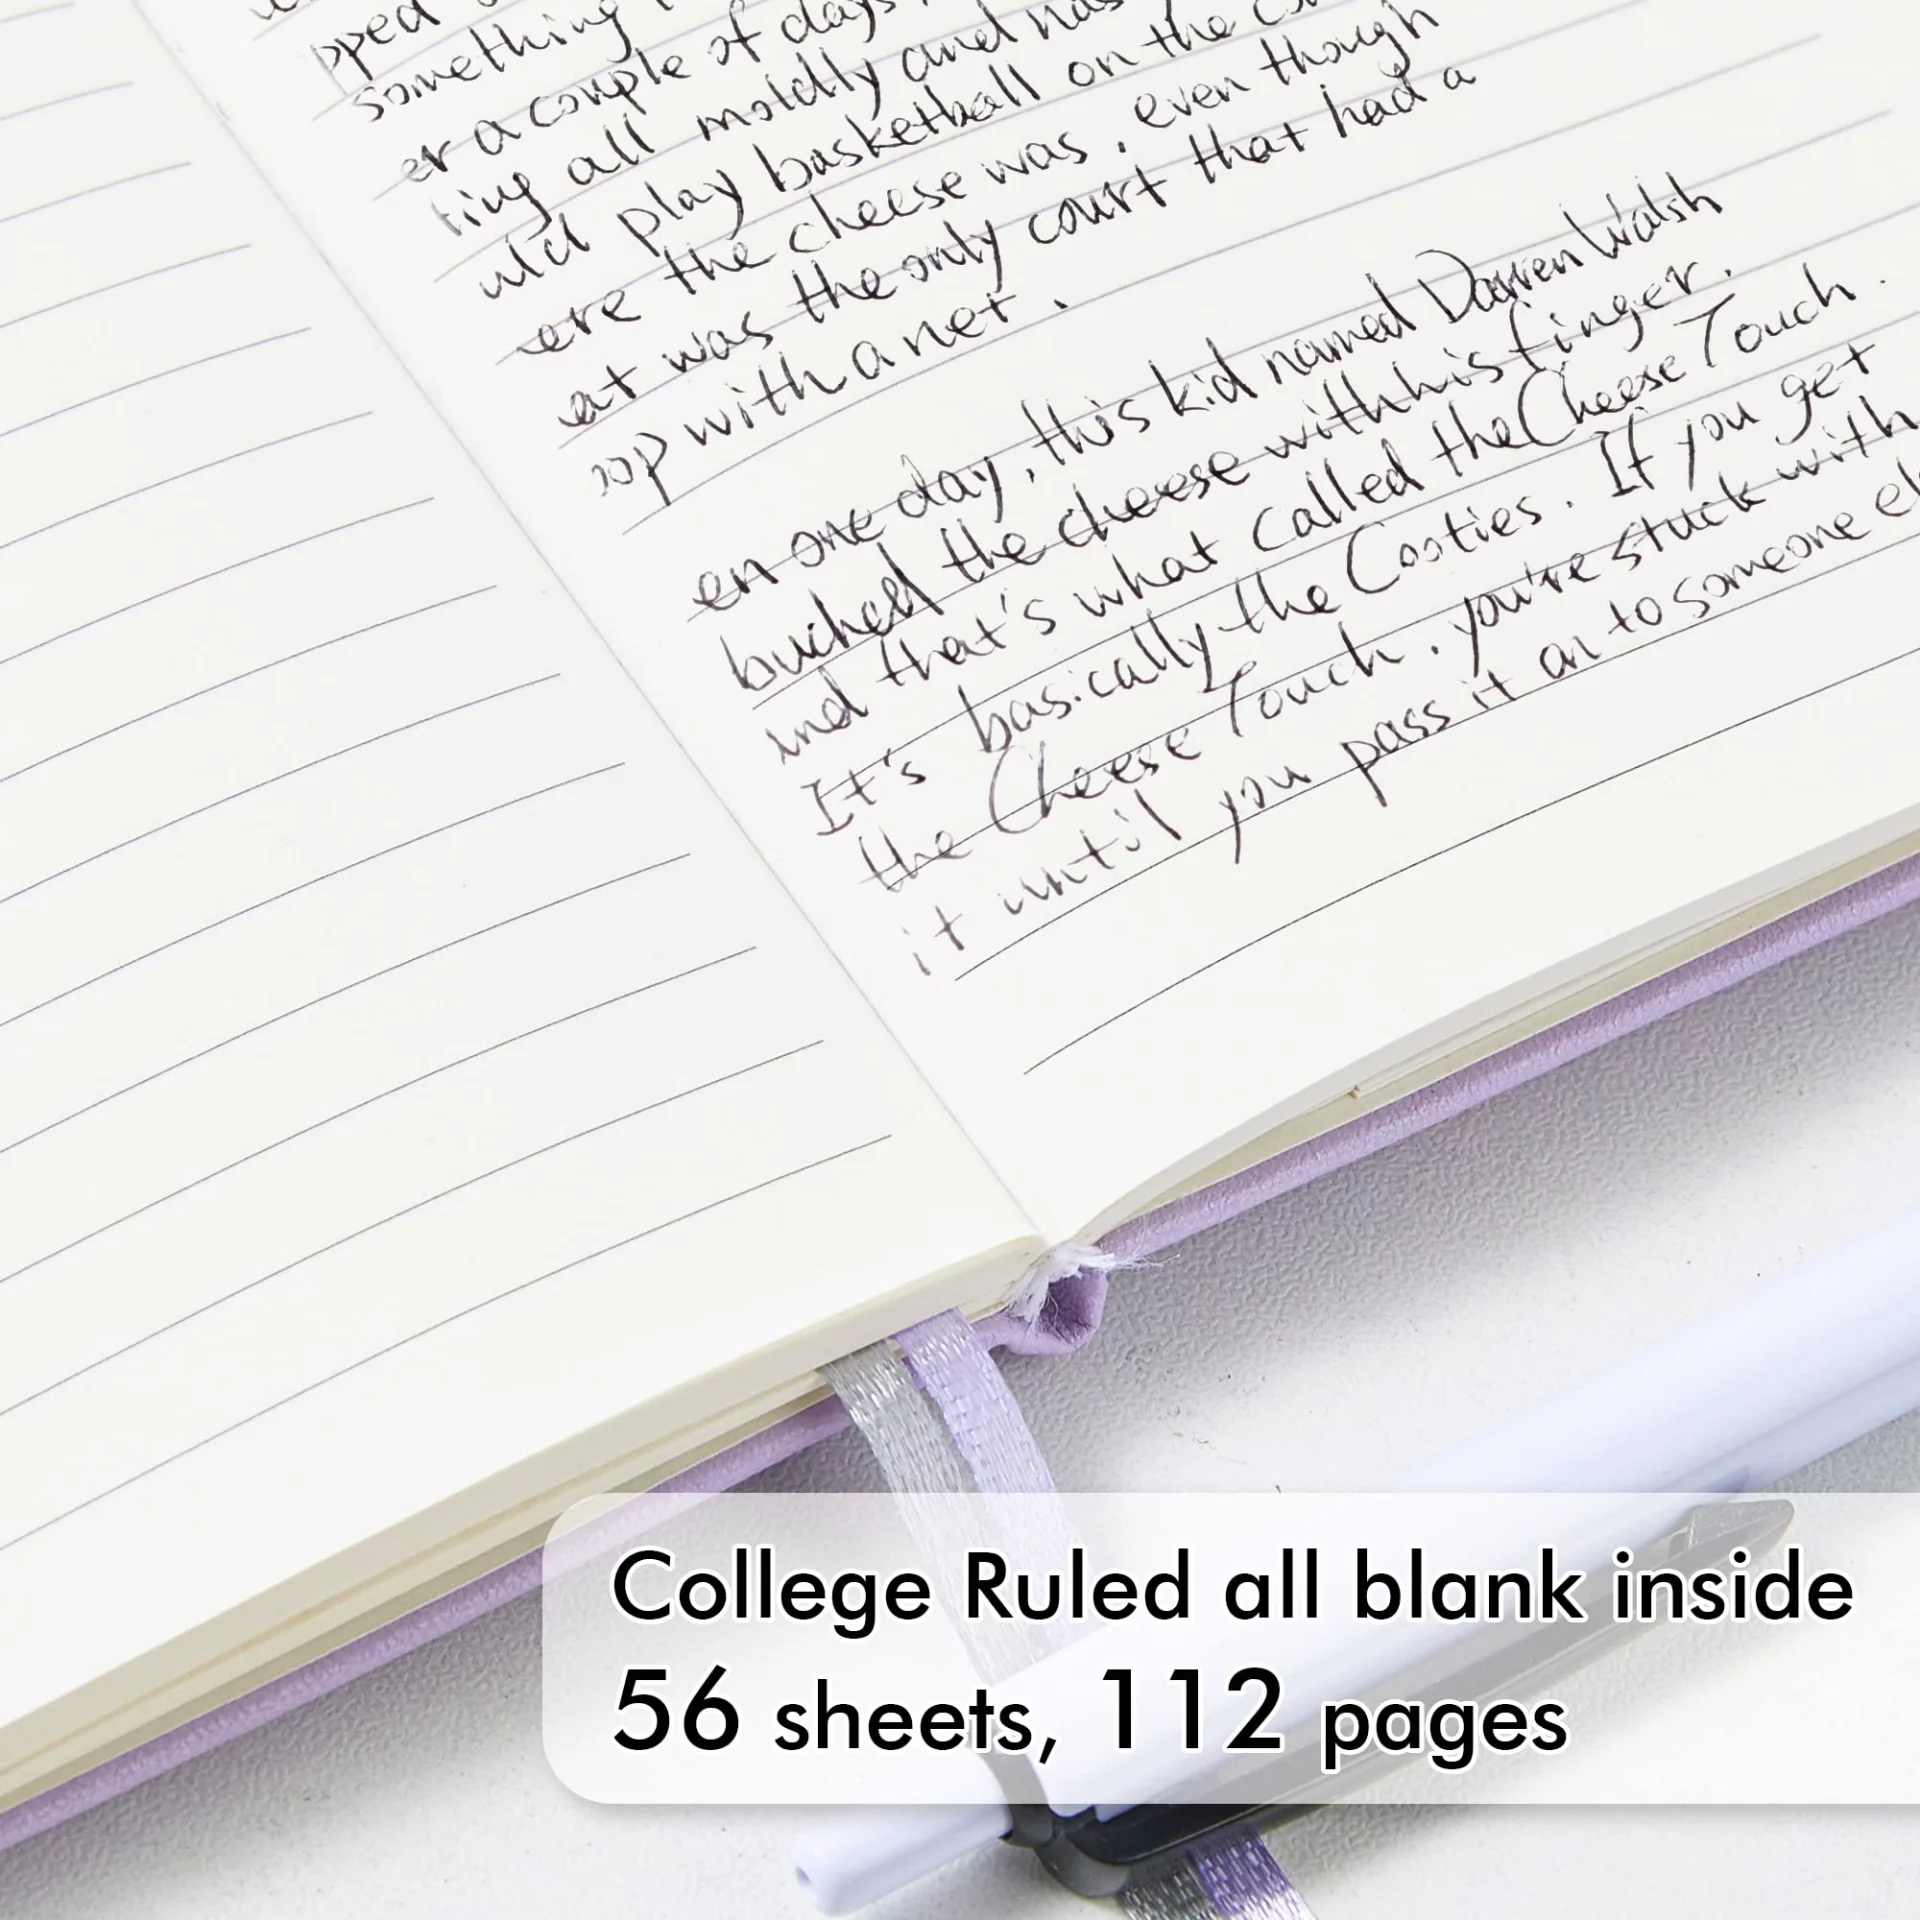 pped
something
er a couple of days,
ting all moldly and has
uld play basketball on the co
ere the cheese was, even though
at was the only court that had a
oop with a net.
en one day, this kid named Darren Walsh
buched the cheese with his finger.
ind that's what called the Cheese Touch.
It's basically the Cooties. If you get
the Cheese Touch, you're stuck with
it until you pass it on to someone el
College Ruled all blank inside
56 sheets, 112 pages